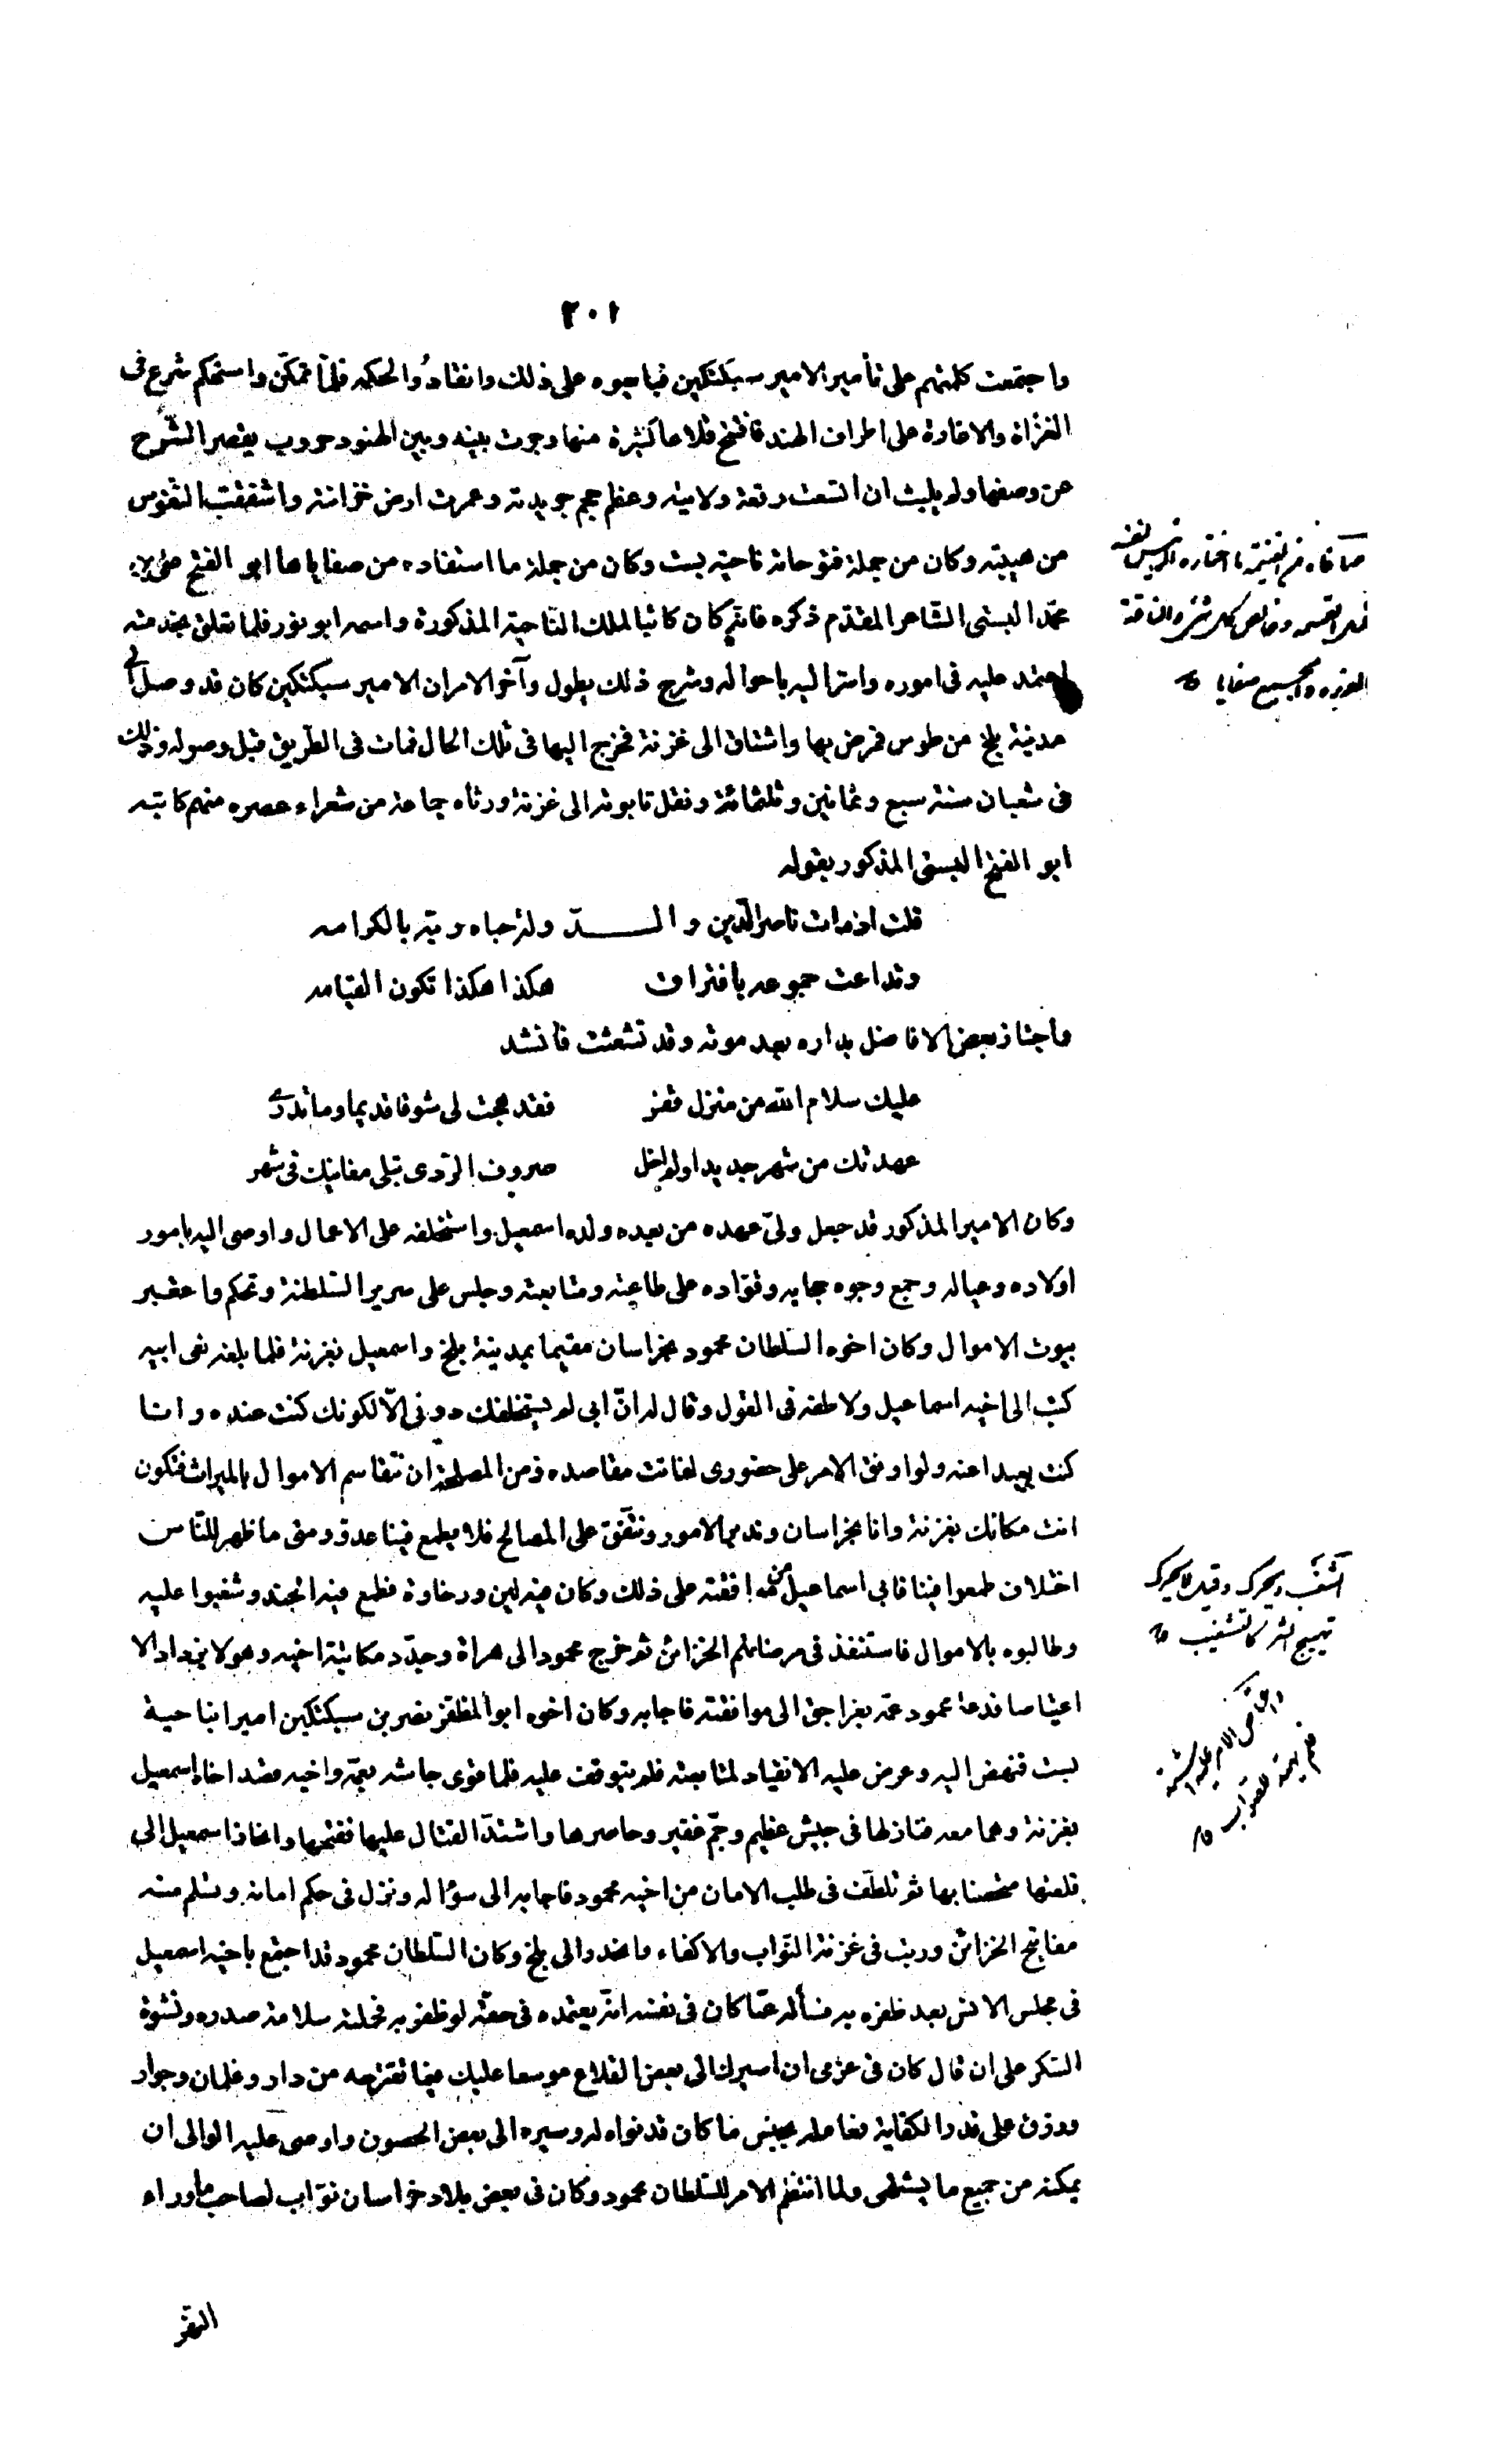 ٢٠١
واجتمعت كلمتهم على تأمير الامير سبكتكين فبايعوه على ذلك وانقادوا لحكمه فلما تمكّن واستحكم شرع فى
الغزاة والاغارة على اطراف الهند فافتتح قلاعا كثيرة منها وجرت بينه وبين الهنود حروب يقصر الشّرح
عن وصفها ولم يلبث ان اتسعت رقعة ولايته وعظم حجم جريدته وعمرت ارض خزانته واشفقت النّفوس
من هيبته وكان من جملة فتوحاته ناحية بست وكان من جملة ما استفاده من صفاياها ابو الفتح على بن
محمّد البستى الشّاعر المقدّم ذكره فانّه كان كاتبا لملك النّاحية المذكورة واسمه ابو نور فلما تعلق بخدمته
اعتمد عليه فى اموره واسترّ اليه باحواله وشرح ذلك يطول وآخر الامر ان الامير سبكتكين كان قد وصل الى
مدينة بلخ من طوس فمرض بها واشتاق الى غزنة فخرج اليها فى تلك الحال فمات فى الطّريق قبل وصوله وذلك
فى شعبان سنة سبع وثمانين وثلثمائة ونقل تابوته الى غزنة ورثاه جماعة من شعراء عصره منهم كاتبه
ابو الفتح البستى المذكور بقوله
قلت اذ مات ناصر الدّين والـــدّ ولة حباه ربّه بالكرامه
وتداعت جموعه بافتراق هكذا هكذا تكون القيامه
واجتاز بعض الافاضل بداره بعد موته وقد تشعثت فانشد
عليك سلام الله من منزل قفر فقد هجت لى شوقا قديما وما تدرى
عهدتك من شهر جديدا ولم اخل صروف الرّدى تبلى مغانيك فى شهر
وكان الامير المذكور قد جعل ولىّ عهده من بعده ولده اسمعيل واستخلفه على الاعمال واوصى اليه بامور
اولاده وعياله وجمع وجوه حجابه وقوّاده على طاعته ومتابعته وجلس على سرير السّلطنة وتحكم واعتبر
بيوت الاموال وكان اخوه السّلطان محمود بخراسان مقيما بمدينة بلخ واسمعيل بغزنة فلما بلغه نعى ابيه
كتب الى اخيه اسماعيل ولاطفه فى القول وقال له انّ ابى لم يستخلفك دونى الّا لكونك كنت عنده وانا
كنت بعيدا عنه ولو اوقف الامر على حضورى لفاتت مقاصده ومن المصلحة ان نتقاسم الاموال بالميراث فتكون
انت مكانك بغزنة وانا بخراسان وندبر الامور ونتّفق على المصالح فلا يطمع فينا عدوّ ومتى ما ظهر للنّاس
اختلاف طمعوا فينا فابى اسماعيل من موافقته على ذلك وكان فيه لين ورخاوة فطمع فيه الجند وشغبوا عليه
وطالبوه بالاموال فاستنفذ فى مرضاتهم الخزائن ثم خرج محمود الى هراة وجدّد مكاتبة اخيه وهو لا يزداد الا
اعتياصا فدعا محمود عمّه بغراجق الى موافقته فاجابه وكان اخوه ابو المظفّر نصر بن سبكتكين اميرا بناحية
بست فنهض اليه وعرض عليه الانقياد لمتابعته فلم يتوقف عليه فلما قوى جاشه بعمّه واخيه قصد اخاه اسمعيل
بغزنة وهما معه فنازلها فى جيش عظيم وجمّ غفير وحاصرها واشتدّ القتال عليها ففتحها وانحاز اسمعيل الى
قلعتها متحصنا بها ثم تلطّف فى طلب الامان من اخيه محمود فاجابه الى سؤاله ونزل فى حكم امانه وتسلم منه
مفاتيح الخزائن ورتب فى غزنة النّواب والاكفاء وانحدر الى بلخ وكان السّلطان محمود قد اجتمع باخيه اسمعيل
فى مجلس الانس بعد ظفره به فسأله عمّا كان فى نفسه انّه يعتمده فى حقّه لو ظفر به فحملته سلامة صدره ونشوة
السّكر على ان قال كان فى عزمى ان اسيرك الى بعض القلاع موسعا عليك فيما تقترحه من دار وغلمان وجوار
ورزق على قدر الكفاية فعامله بجنس ما كان قد نواه له وسيره الى بعض الحصون واوصى عليه الوالى ان
يمكنه من جميع ما يشتهى ولما انتظم الامر للسّلطان محمود وكان فى بعض بلاد خراسان نوّاب لصاحب ماوراء
النهر
من الغنيمة ما اختاره الرئيس لنفسه
قبل القسمة وخالص كل شئ والناقة
الغزيرة والجمع صفايا
الشغب ويحرك وقيل لا يحرك
تهييج الشر كالتشغيب